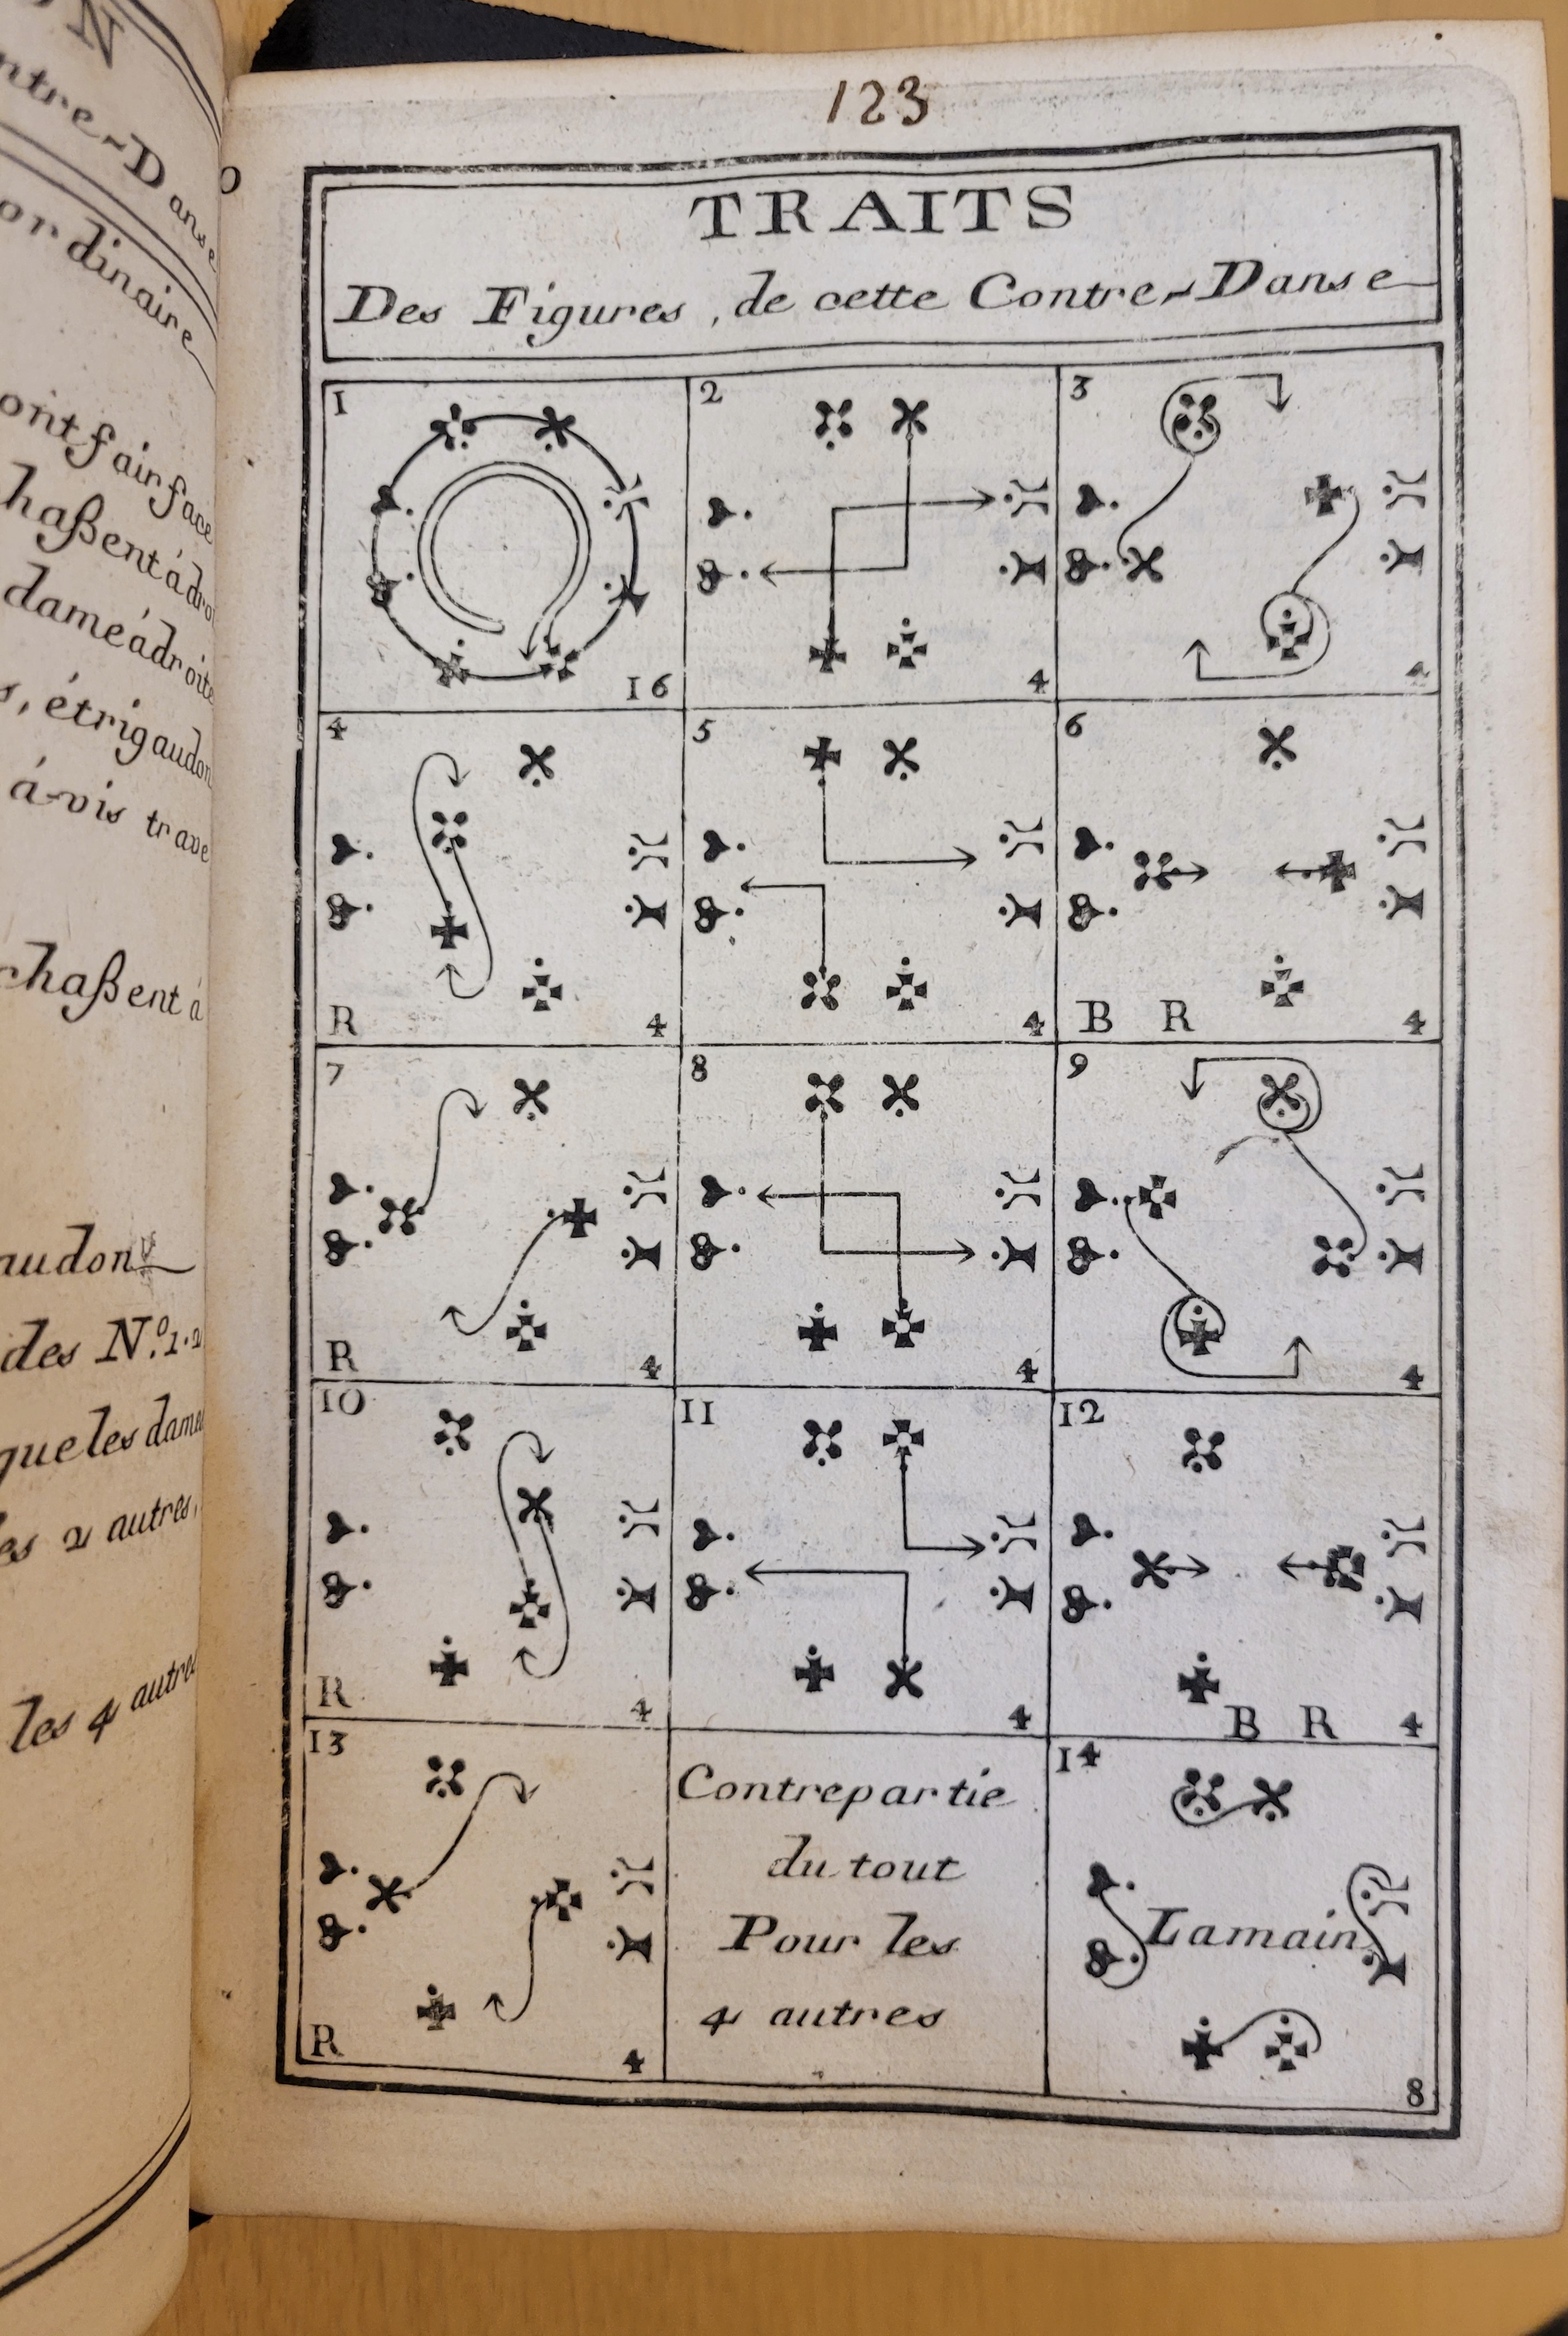 N
ntre-Danse
ordinaire
ont fair face
haßent á dro
dame á droite
s, étrigaudon
á-vis trave
chaßent á
audon
des N.º 1.2
que les dame
es 2 autres,
les 4 autres
123
TRAITS
Des Figures, de cette Contre-Danse
1
16
2
4
3
4
4
R
4
5
4
6
B R
4
7
R
4
8
4
9
4
10
R
4
11
4
12
B R
4
13
R
4
Contrepartie
du tout
Pour les
4 autres
14
Lamain
8